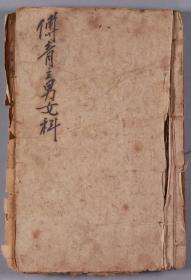 傅青主男女科